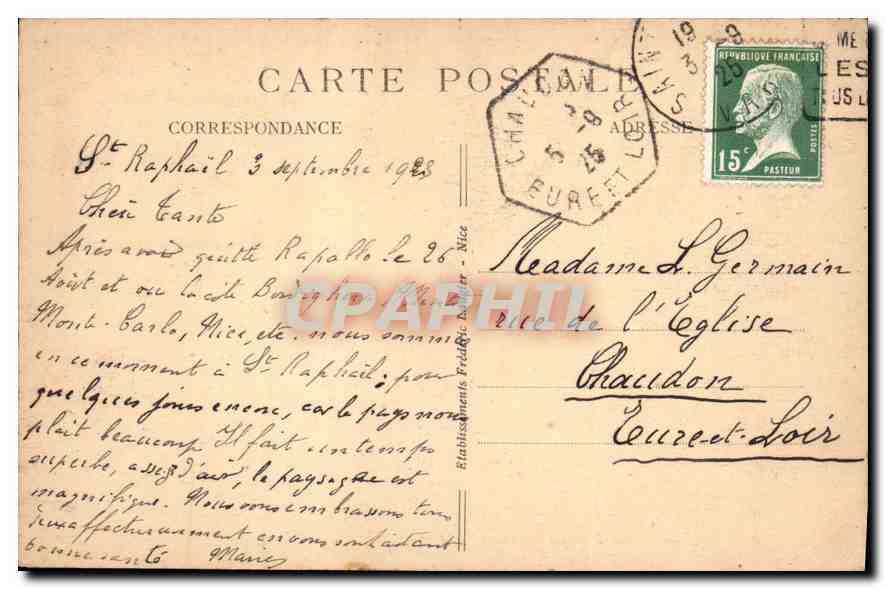 CARTE POSTALE
CORRESPONDANCE
ADRESSE
St Raphaël 3 septembre 1925
Chère Tante
Après avoir quitté Rapallo le 26
Août et vu la côte Bordighera, Menton
Monte-Carlo, Nice, etc. nous sommes
en ce moment à St Raphaël; pour
quelques jours encore, car le pays nous
plait beaucoup Il fait un temps
superbe, assez d'air, le paysage est
magnifique. Nous vous embrassons tous
deux affectueusement en vous souhaitant
bonne santé Marie
Etablissements Frédéric Laugier - Nice
CPAPHIL
Madame L. Germain
rue de l'Eglise
Chaudon
Eure-et-Loir
CHAUDON
5 -9
25
EURE ET LOIR
SAINT
19
3 -9
25
VAR
REPUBLIQUE FRANÇAISE
15c
POSTES
PASTEUR
ME
LES